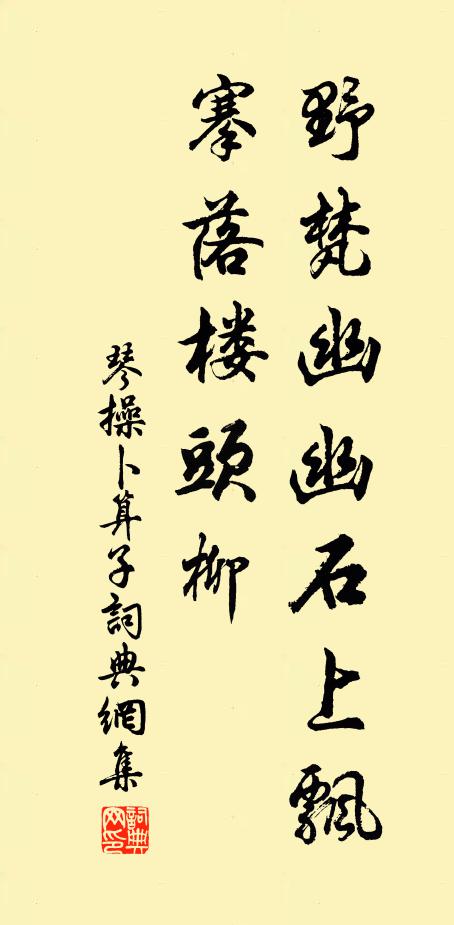 野梵幽幽石上飘
搴落楼頭柳
琴操卜算子詞典網集
詞典網印